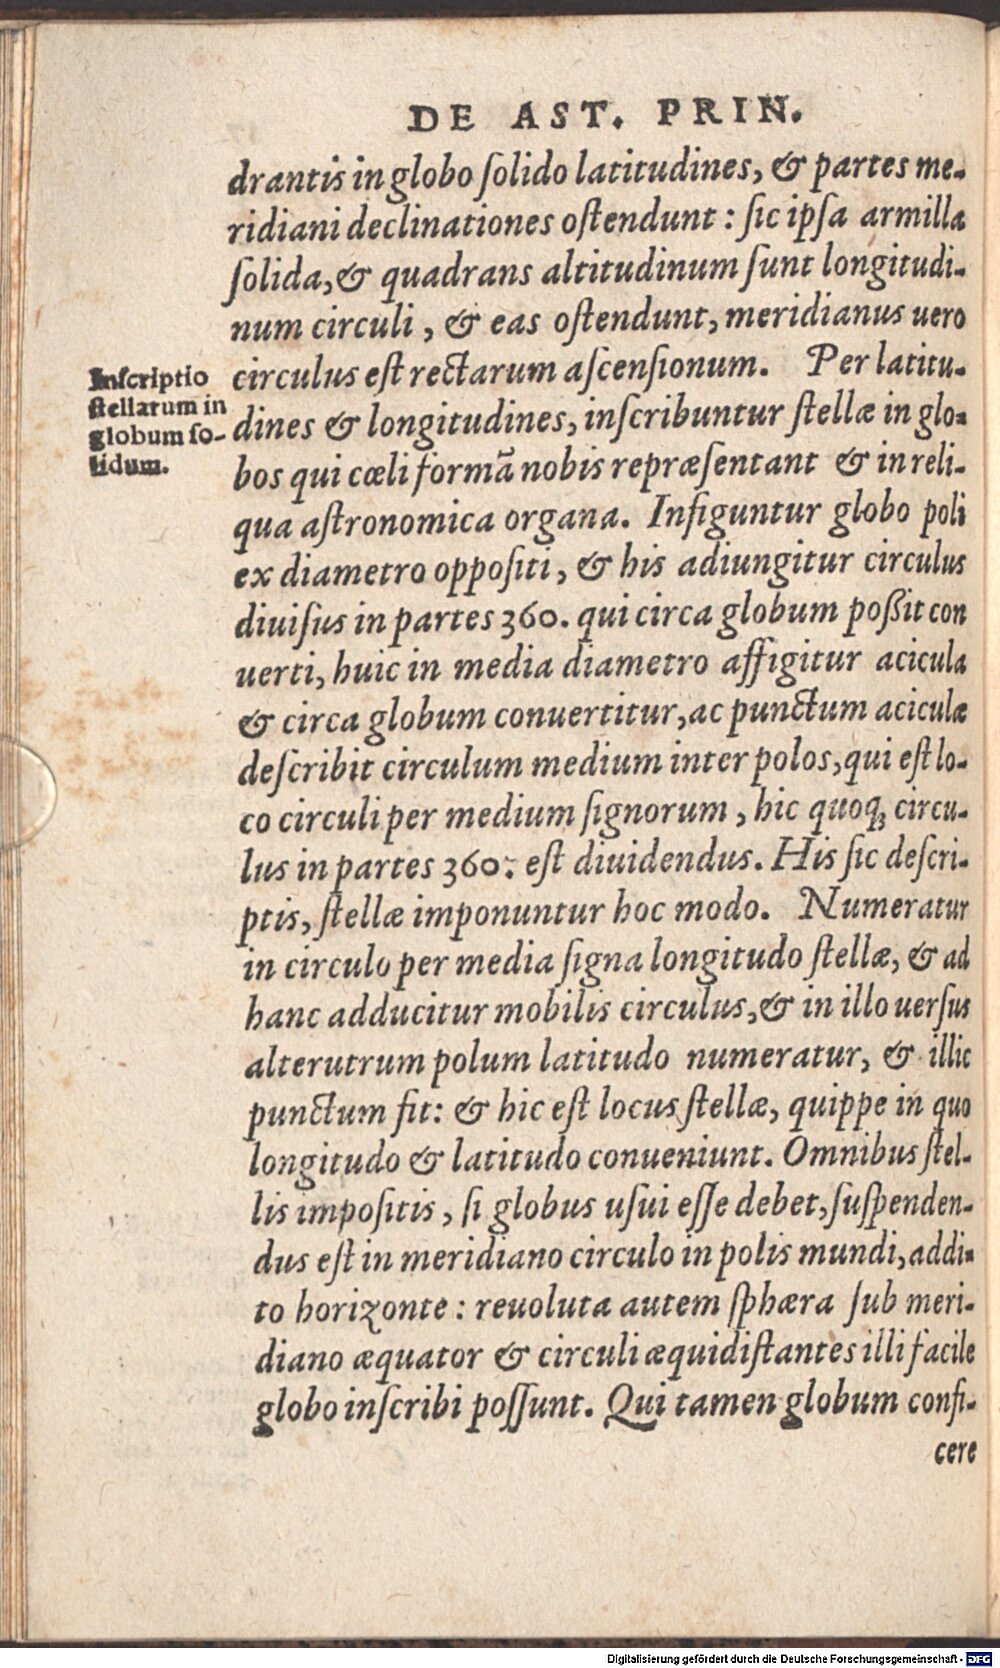 DE AST. PRIN.
drantis in globo ſolido latitudines, & partes me-
ridiani declinationes oſtendunt : ſic ipſa armilla
ſolida, & quadrans altitudinum ſunt longitudi-
num circuli , & eas oſtendunt, meridianus uero
circulus eſt rectarum aſcenſionum. Per latitu-
dines & longitudines, inſcribuntur ſtellæ in glo-
bos qui cœli formã nobis repræſentant & in reli-
qua aſtronomica organa. Infiguntur globo poli
ex diametro oppoſiti , & his adiungitur circulus
diuiſus in partes 360. qui circa globum poßit con
uerti, huic in media diametro affigitur acicula
& circa globum conuertitur, ac punctum aciculæ
deſcribit circulum medium inter polos, qui eſt lo-
co circuli per medium ſignorum , hic quoq; circu-
lus in partes 360. eſt diuidendus. His ſic deſcri-
ptis, ſtellæ imponuntur hoc modo. Numeratur
in circulo per media ſigna longitudo ſtellæ, & ad
hanc adducitur mobilis circulus, & in illo uerſus
alterutrum polum latitudo numeratur, & illic
punctum fit: & hic eſt locus ſtellæ, quippe in quo
longitudo & latitudo conueniunt. Omnibus ſtel-
lis impoſitis , ſi globus uſui eſſe debet, ſuſpenden-
dus eſt in meridiano circulo in polis mundi, addi-
to horizonte : reuoluta autem ſphæra ſub meri-
diano æquator & circuli æquidiſtantes illi facile
globo inſcribi poſſunt. Qui tamen globum confi-
cere
Inſcriptio
ſtellarum in
globum ſo-
lidum.
Digitalisierung gefördert durch die Deutsche Forschungsgemeinschaft - DFG